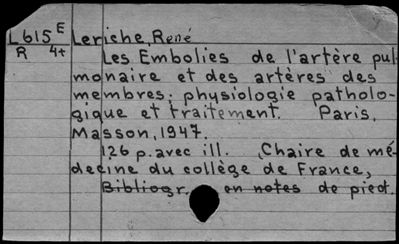 L615E Leriche, René
R 4+
Les Embolies de l'artère pul-
monaire et des artères des
membres; physiologie patholo-
gique et traitement. Paris,
Masson, 1947.
126 p. avec ill. (Chaire de mé-
decine du collège de France,
Bibliogr. en notes de pied.